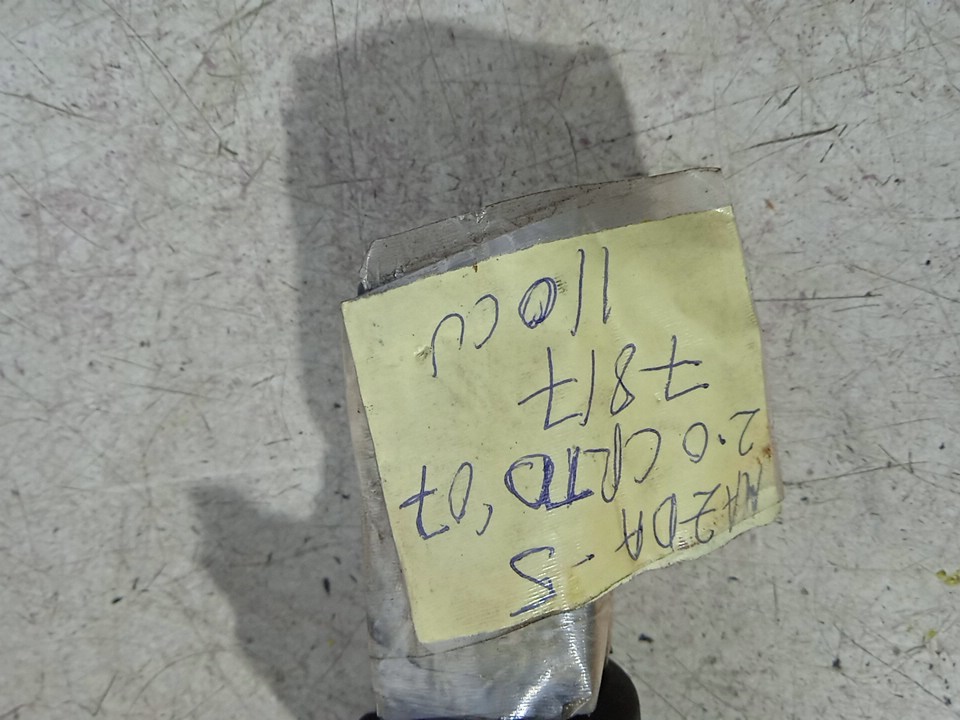 MAZDA -5
2.0 CRTD '07
7817
110 CU